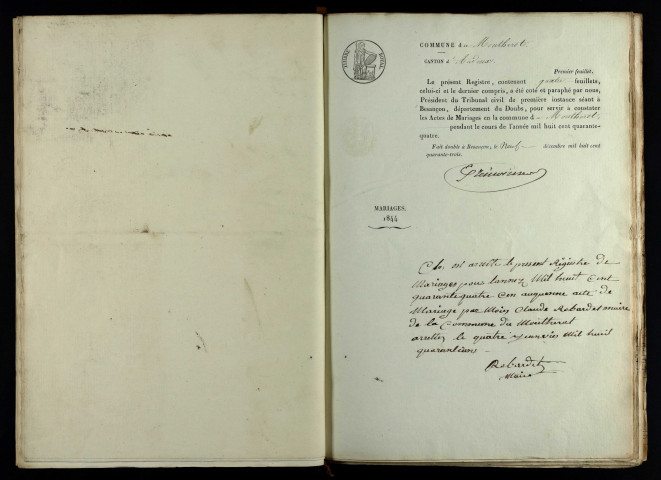 COMMUNE d
CANTON d
Premier feuillet.
Le présent Registre, contenant quatre feuillets,
celui-ci et le dernier compris, a été coté et paraphé par nous,
Président du Tribunal civil de première instance séant à
Besançon, département du Doubs, pour servir à constater
les Actes de Mariages en la commune d
pendant le cours de l'année mil huit cent quarante-
quatre.
Fait double à Besançon, le neuf décembre mil huit cent
quarante-trois.
MARIAGES.
1844
Clos est arretté le present Régistre de
Mariages pour lannez Mil huit Cent
quarantequatre acte de
Mariage par Claude Rebardet maire
de la Commune du
le quatre janvier Mil huit
Rebardet
Maire